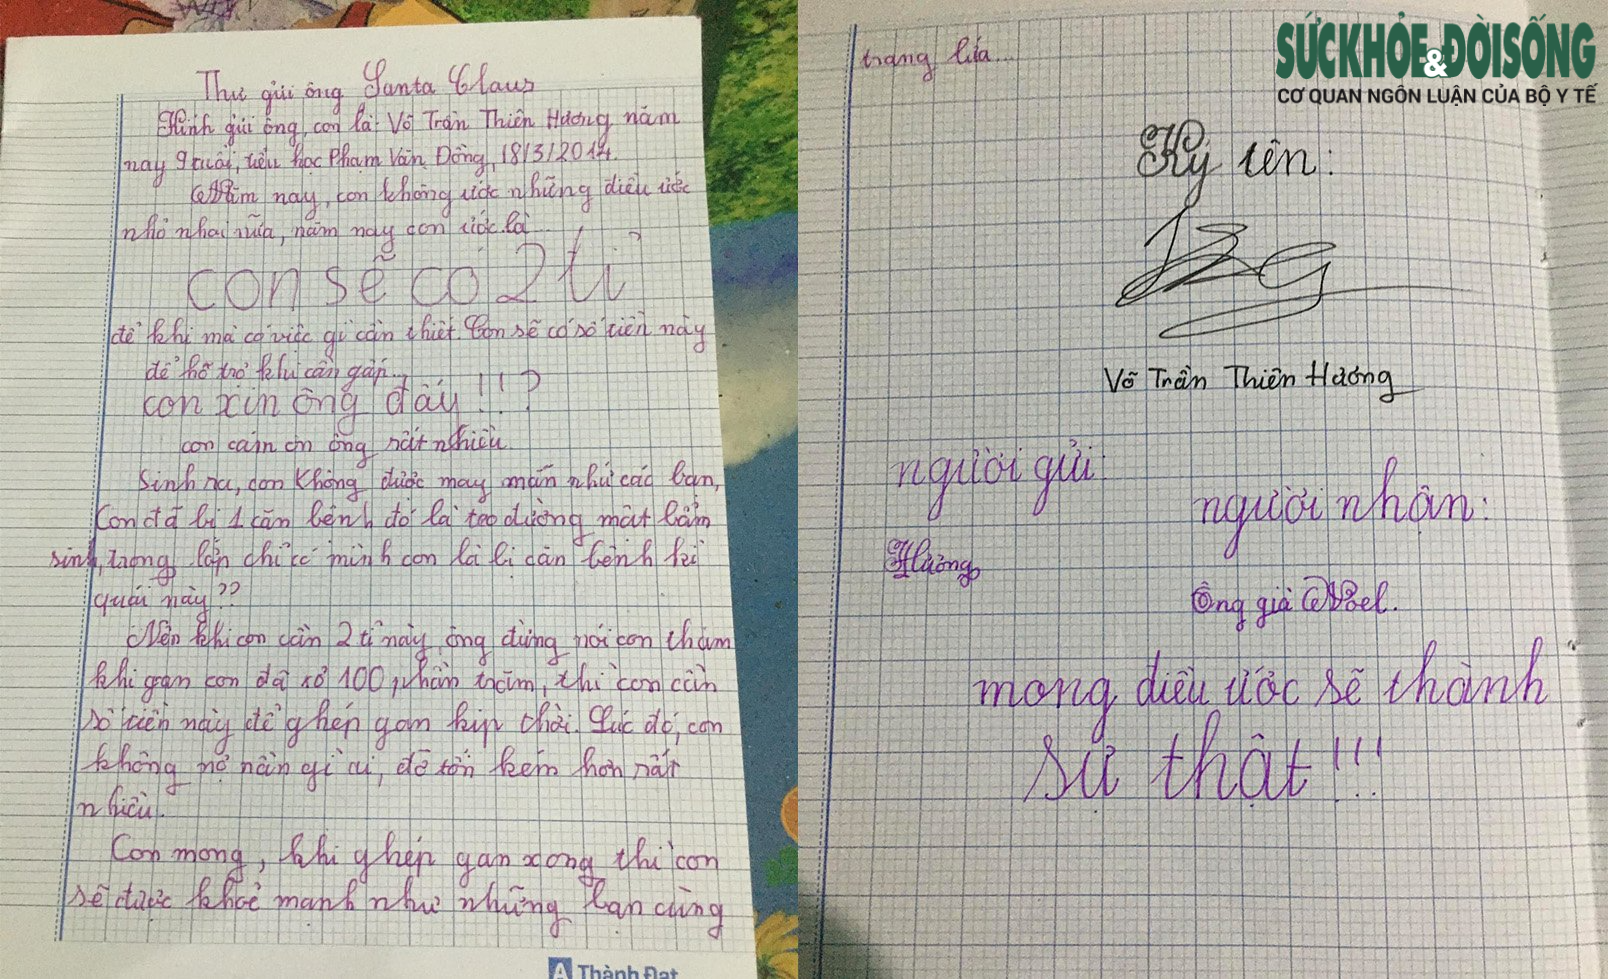 Thư gửi ông Santa Claus
Kính gửi ông, con là: Võ Trần Thiên Hương năm
nay 9 tuổi, tiểu học Phạm Văn Đồng, 18/3/2014.
Năm nay, con không ước những điều ước
nhỏ nhoi nữa, năm nay con ước là
con sẽ có 2 tỉ
để khi mà có việc gì cần thiết. Con sẽ có số tiền này
để hỗ trợ khi cần gấp...
con xin ông đấy!!!?
con cảm ơn ông rất nhiều.
Sinh ra, con không được may mắn như các bạn,
Con đã bị 1 căn bệnh đó là teo đường mật bẩm
sinh, trong lớp chỉ có mình con là bị căn bệnh kì
quái này??
Nên khi con cần 2 tỉ này, ông đừng nói con tham
khi gan con đã xơ 100 phần trăm, thì con cần
số tiền này để ghép gan kịp thời. Lúc đó, con
không nợ nần gì ai, đỡ tốn kém hơn rất
nhiều.
Con mong, khi ghép gan xong thì con
sẽ được khoẻ mạnh như những bạn cùng
A Thành Đạt
trang lứa...
SỨC KHỎE & ĐỜI SỐNG
CƠ QUAN NGÔN LUẬN CỦA BỘ Y TẾ
Ký tên:
Võ Trần Thiên Hương
người gửi:
người nhận:
Hương
Ông già Noel.
mong điều ước sẽ thành
sự thật!!!